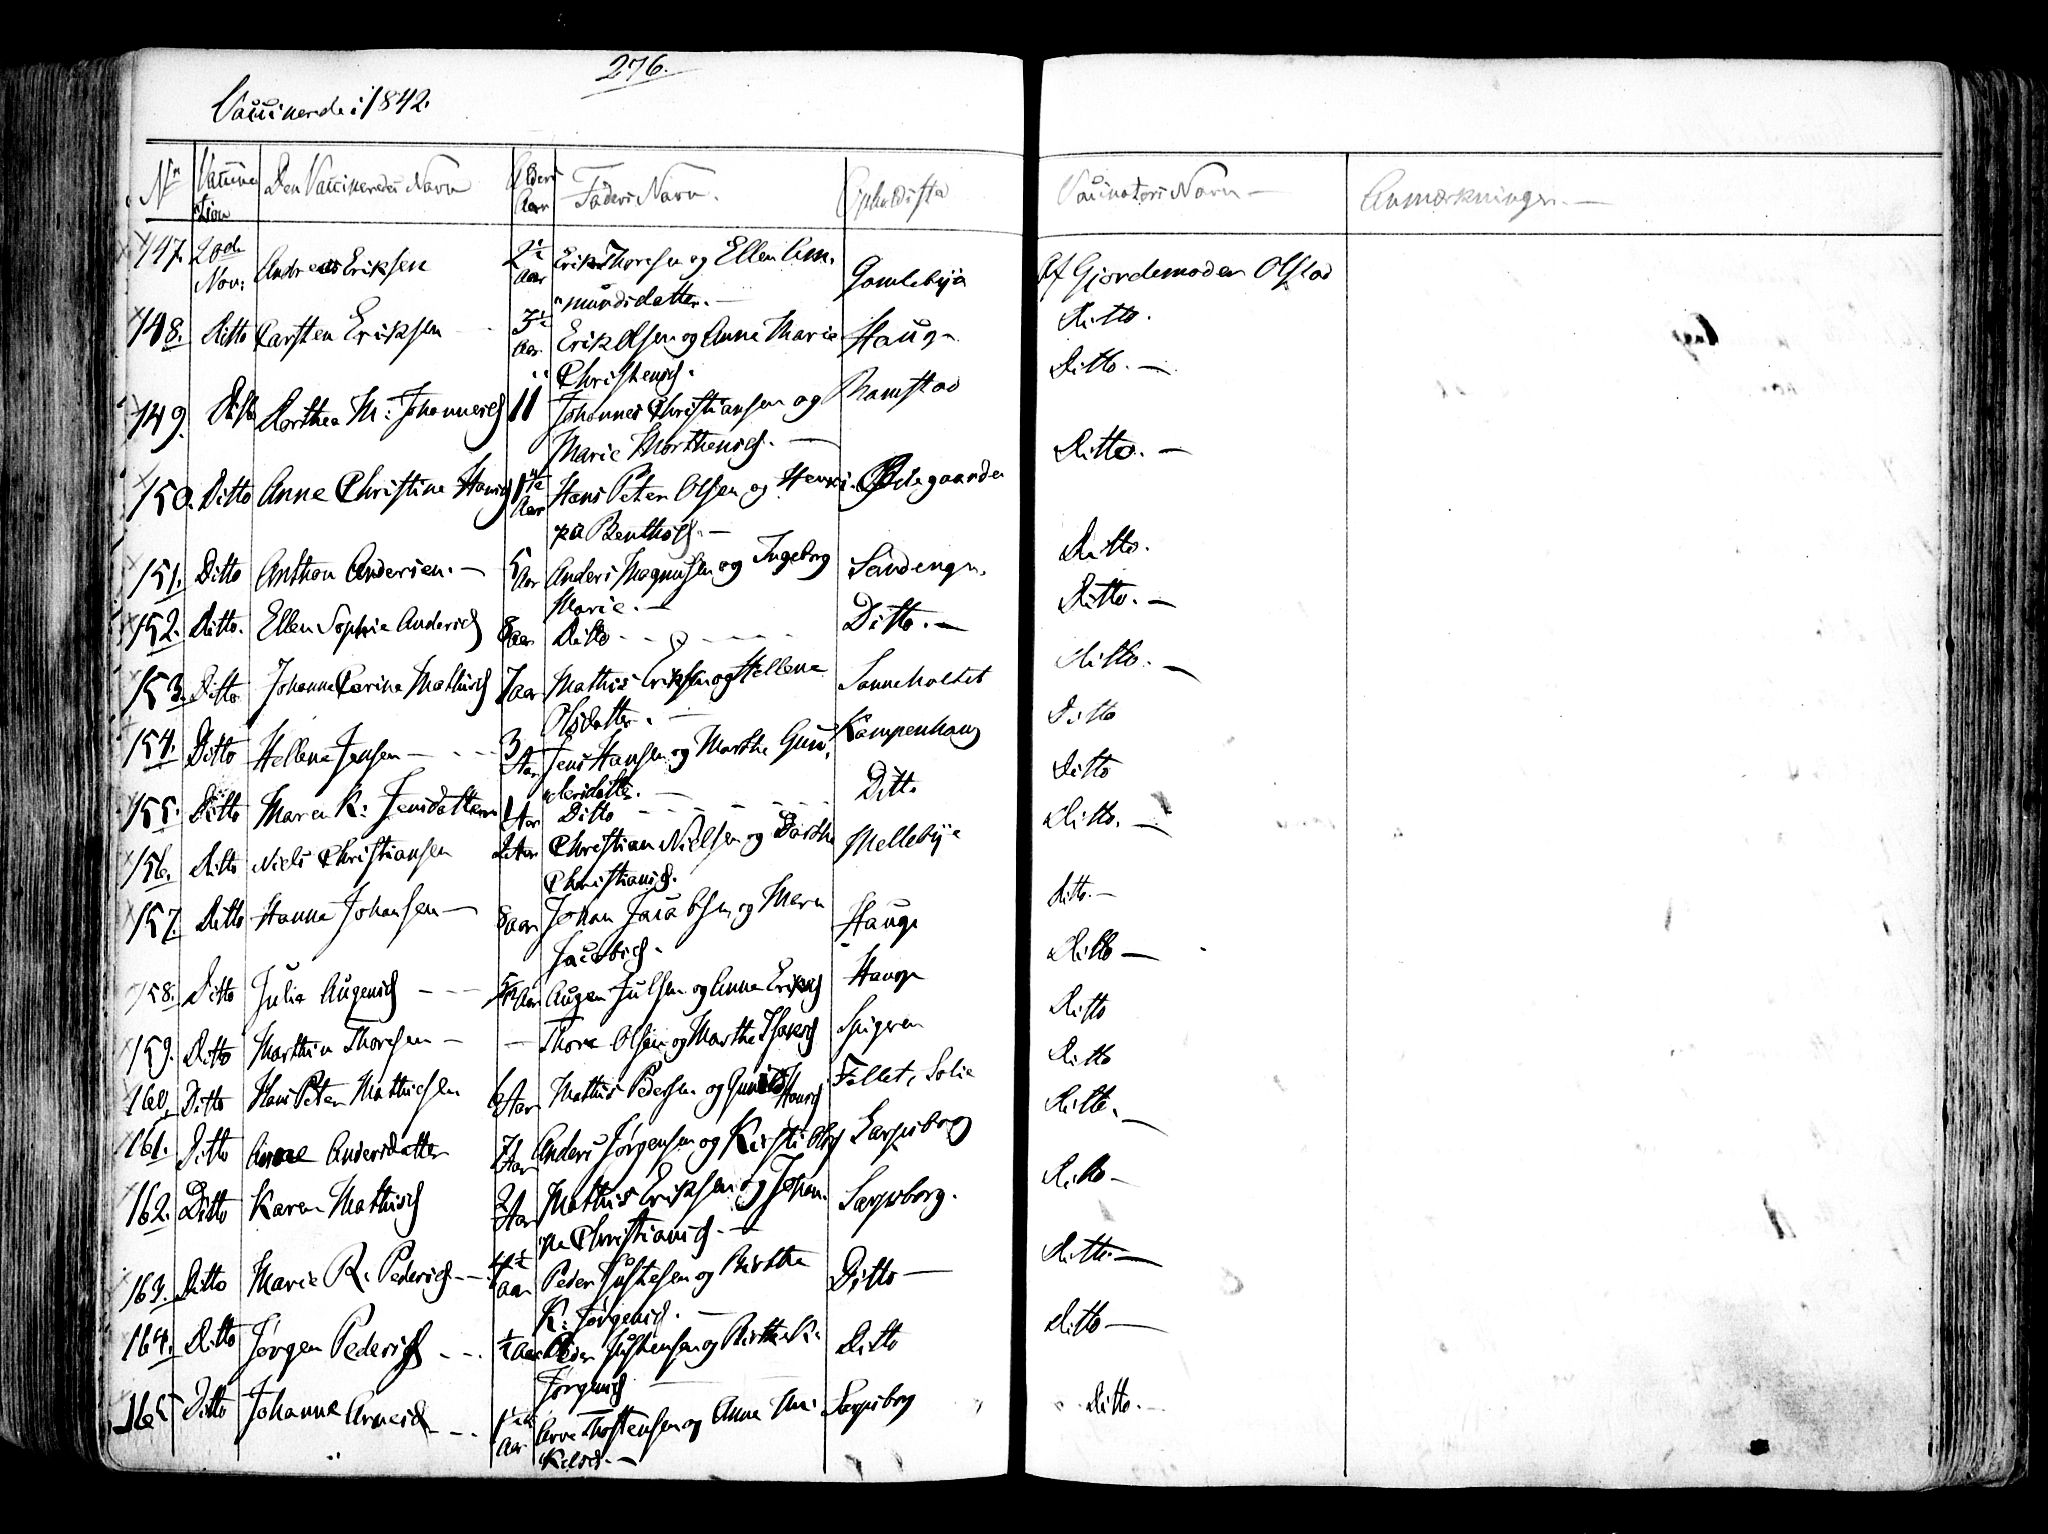 276.
Vaccinerde i 1842.
No Vaccina- Den Vaccineredes Navn Alders Faders Navn. Opholdssted Vaccinators Navn — Anmærkninger. —
tion Aar
147. 20de Andreas Eriksen 2½ Erik Thoresen og Ellen Am- Gamlebye Af Gjordemoder Olstad
Nov: Aar "mundsdatter. —
148. Ditto Carsten Eriksen 3½ Erik Olsen og Anne Marie Haug Ditto.
Aar Christensd.
149. Ditto Dorthea M: Johannesd 11 Johannes Christiansen og Ramstad Ditto. —
Marie Morthensd. —
150. Ditto Anne Christine Hansd 1½ Hans Peter Olsen og Henri- Ødegaarden Ditto. —
Aar "ka Bentsd. —
151. Ditto Anthon Andersen. — 5 Aar Anders Magnusen og Ingeborg Sandengn. Ditto.
Marie. —
152. Ditto. Ellen Sophie Andersd 8 aar Ditto - - - Ditto. — Ditto. —
153. Ditto Johanne Carine Mathisd 7 aar Mathis Eriksen og Hellene Sanneholtet Ditto. —
Olsdatter. —
154. Ditto Hellene Jensen — 3 Aar Jens Hansen og Marthe Gun- Kampenhaug Ditto
"dersdatter. —
155. Ditto Maren K: Jensdatter 1 Aar Ditto - - - Ditto Ditto
156. Ditto Niels Christiansen 2 Aar Christian Nielsen og Dorthe Mellebye Ditto. —
Christiansd.
157. Ditto Hanna Johansen — 8 aar Johan Jacobsen og Maren Hauge Ditto. —
Jacobsd.
158. Ditto Julia Augensd - - - Aar Augen Julsen og Anne Eriksd Hauge Ditto —
159. Ditto Marthin Thoresen — — Thore Olsen og Marthe Isaksd Spigeren Ditto
160. Ditto Hans Peter Mathisen 6 Aar Mathis Pedersen og Gunild Hansd Fallet, Solie Ditto
161. Ditto Anne Andersdatter 7 Aar Anders Jørgensen og Kirsti Olsd Sarpsborg Ditto. —
162. Ditto Karen Mathisd 2 Aar Mathis Eriksen og Johan- Sarpsborg. Ditto —
"ne Christiansd. —
163. Ditto Marie R. Pedersd - - 4½ aar Peder Justesen og Birthe Ditto — Ditto. —
K: Jørgensd. —
164. Ditto Jørgen Pedersd - - - ½ Aar Peder Justensen og Birthe K: Ditto Ditto —
Jørgensd —
165 Ditto Johanne Arnesd - - - 1½ Aar Arve Thostensen og Anne Mi- Sarpsborg Ditto. —
kelsd. —